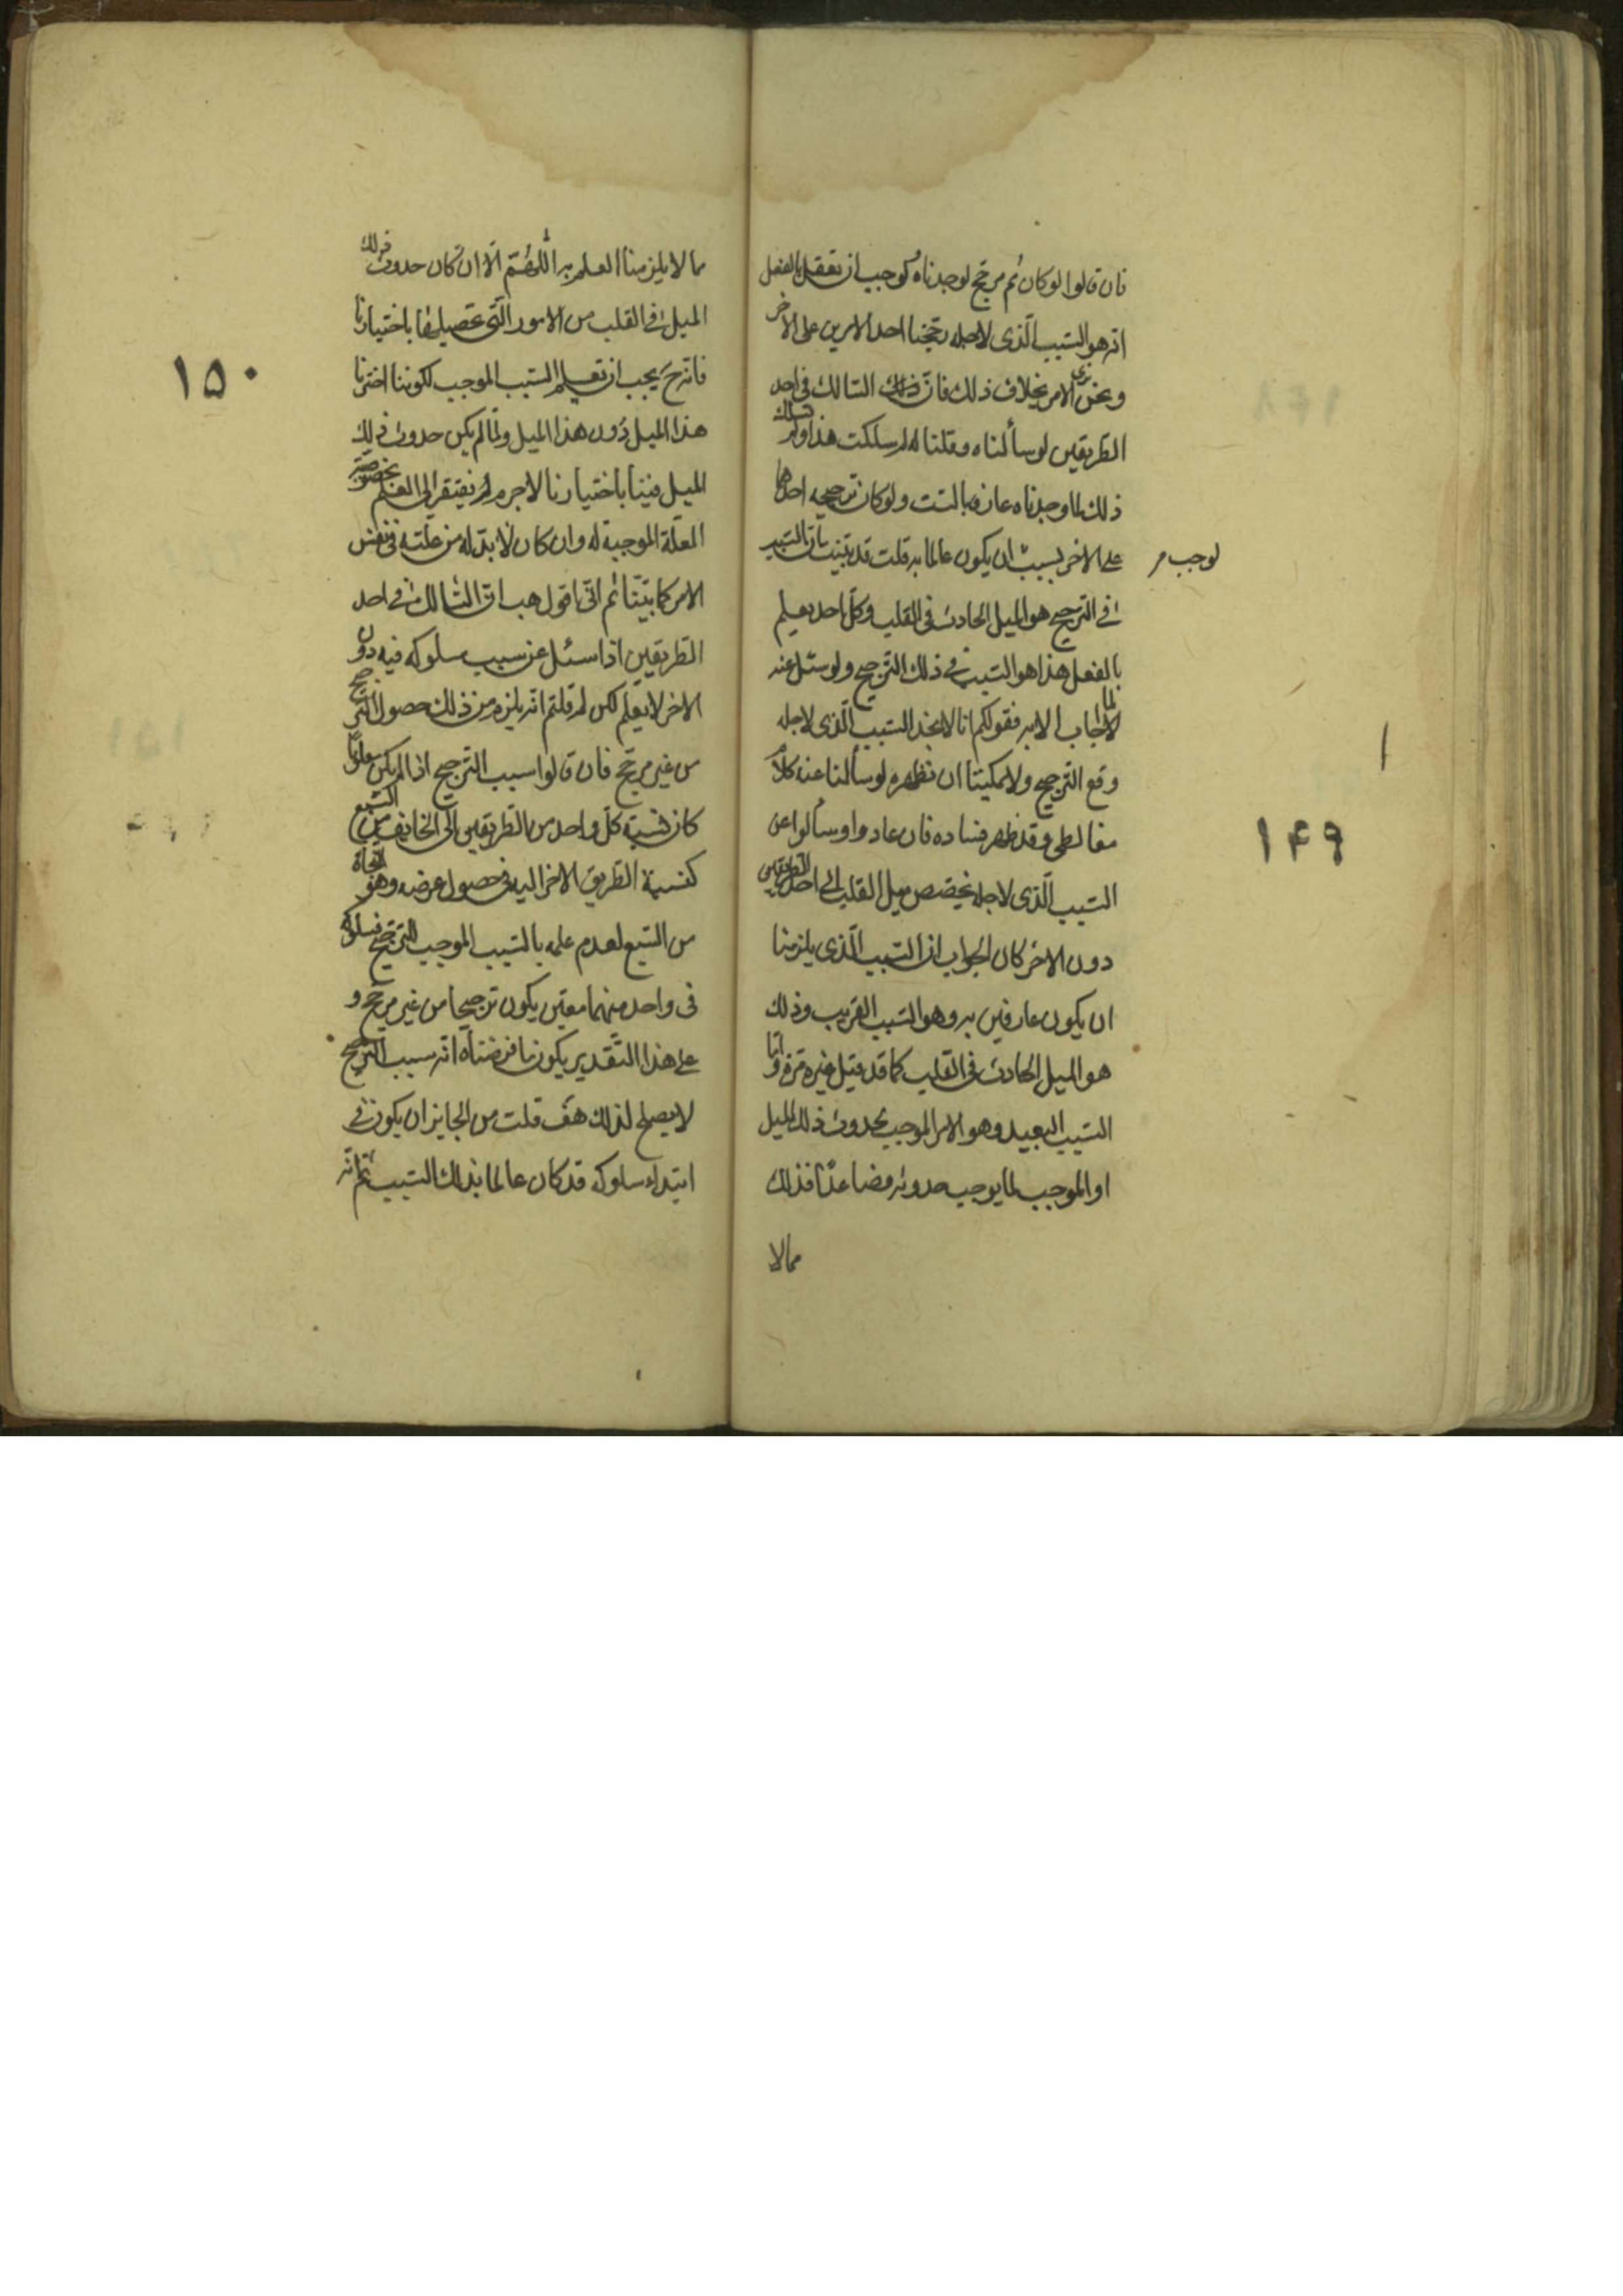 فان قالوا لو كان ثم مرجح لوجدناه ولوجب ان نعقل بالفعل
انه هو السبب الذى لاجله رجحنا احد الامرين على الاخر
ونحن نرى الامر بخلاف ذلك فان ذلك السالك فى احد
الطريقين لو سألناه وقلنا له لم سلكت هذا ولم تسلك
ذلك لما وجدناه عارفا بالسبب ولو كان ترجيحه احدهما
على الاخر بسبب ان يكون عالما به قلت قد بينت بان السبب
لوجب
فى الترجيح هو الميل الحادث فى القلب وكل احد يعلم
بالفعل هذا هو السبب فى ذلك الترجيح ولو سئل عنه
لما اجاب الا به فقولكم انا لا نجد السبب الذى لاجله
وقع الترجيح ولا يمكننا ان نظهره لو سألنا عنه كلام
مغالطى وقد ظهر فساده فان عادوا وسألوا عن
السبب الذى لاجله تخصص ميل القلب الى احد الطريقين
دون الاخر كان الجواب ان السبب الذى يلزمنا
ان يكون عارفين به وهو السبب القريب وذلك
هو الميل الحادث فى القلب كما قد قيل غيره مرة واما
السبب البعيد وهو الامر الموجب لحدوث ذلك الميل
او الموجب لما يوجب حدوثه فصاعدا فذلك
مما لا
١٤٩
مما لا يلزمنا العلم به اللهم الا ان كان حدوث ذلك
الميل فى القلب من الامور التى تحصيلها باختيارنا
فانه ح يجب ان نعلم السبب الموجب لكوننا اخترنا
هذا الميل دون هذا الميل ولما لم يكن حدوث ذلك
الميل فينا باختيارنا لا جرم لم نفتقر الى العلم بخصوصية
العلة الموجبة له وان كان لا بد له من علته فى نفس
الامر كما بينا ثم انى اقول هب ان السالك فى احد
الطريقين اذا سئل عن سبب سلوكه فيه دون
الاخر لا يعلم لكن لم قلتم انه يلزم من ذلك حصول الترجيح
من غير مرجح فان قالوا سبب الترجيح اذا لم يكن معلوما
كان نسبة كل واحد من الطريقين الى الخايف من السبع
كنسبة الطريق الاخر اليه فى حصول غرضه وهو النجاة
من السبع لعدم علمه بالسبب الموجب للترجيح فسلوكه
فى واحد منهما معين يكون ترجيحا من غير مرجح و
على هذا التقدير يكون ما فرضناه انه سبب الترجيح
لا يصلح لذلك هف قلت من الجايز ان يكون فى
ابتداء سلوكه قد كان عالما بذلك السبب ثم انه
١٥٠